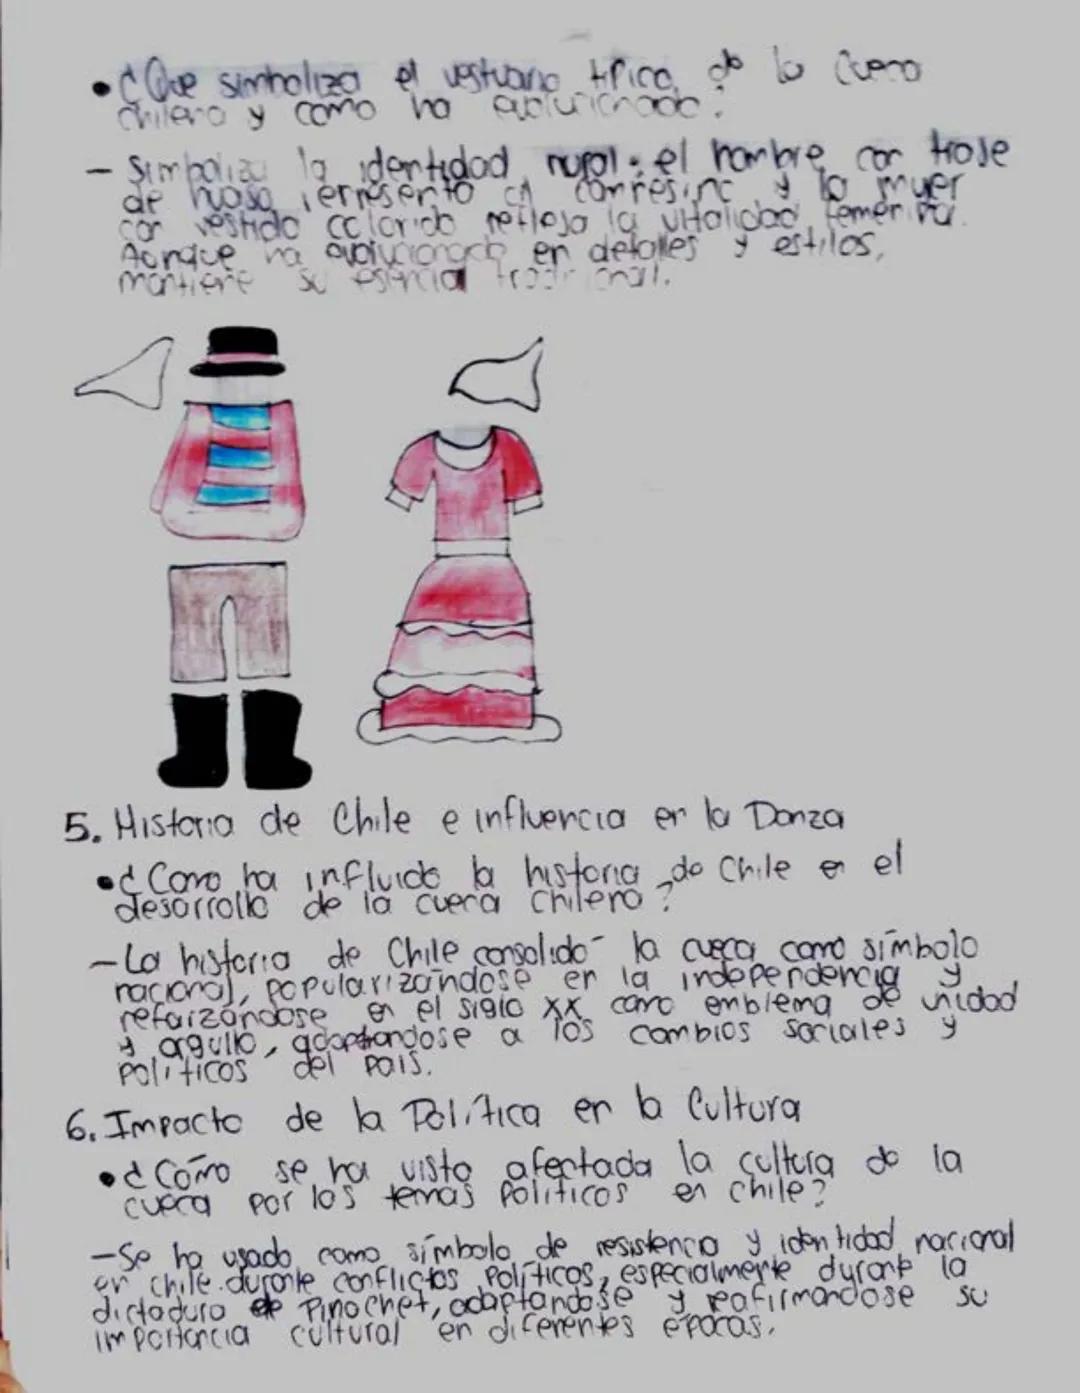 • ¿Que simboliza el vestuario tipico de la cueca
chilena y como ha evolucionado?
– Simboliza la identidad rural: el hombre con traje
de huaso representa al campesino y la mujer
con vestido colorido refleja la vitalidad femenina.
Aunque ha evolucionado en detalles y estilos,
mantiene su esencia tradicional.
5. Historia de Chile e influencia en la Danza
• ¿Como ha influido la historia de Chile en el
desarrollo de la cueca chilena?
– La historia de Chile consolidó la cueca como símbolo
nacional, popularizándose en la independencia y
reforzandose en el siglo XX como emblema de unidad
y orgullo, adaptandose a los cambios sociales y
políticos del pais.
6. Impacto de la Política en la Cultura
• ¿Cómo se ha visto afectada la cultura de la
cueca por los temas políticos en chile?
– Se ha usado como símbolo de resistencia y identidad nacional
en chile durante conflictos políticos, especialmente durante la
dictadura de Pinochet, adaptandose y reafirmandose su
importancia cultural en diferentes épocas.